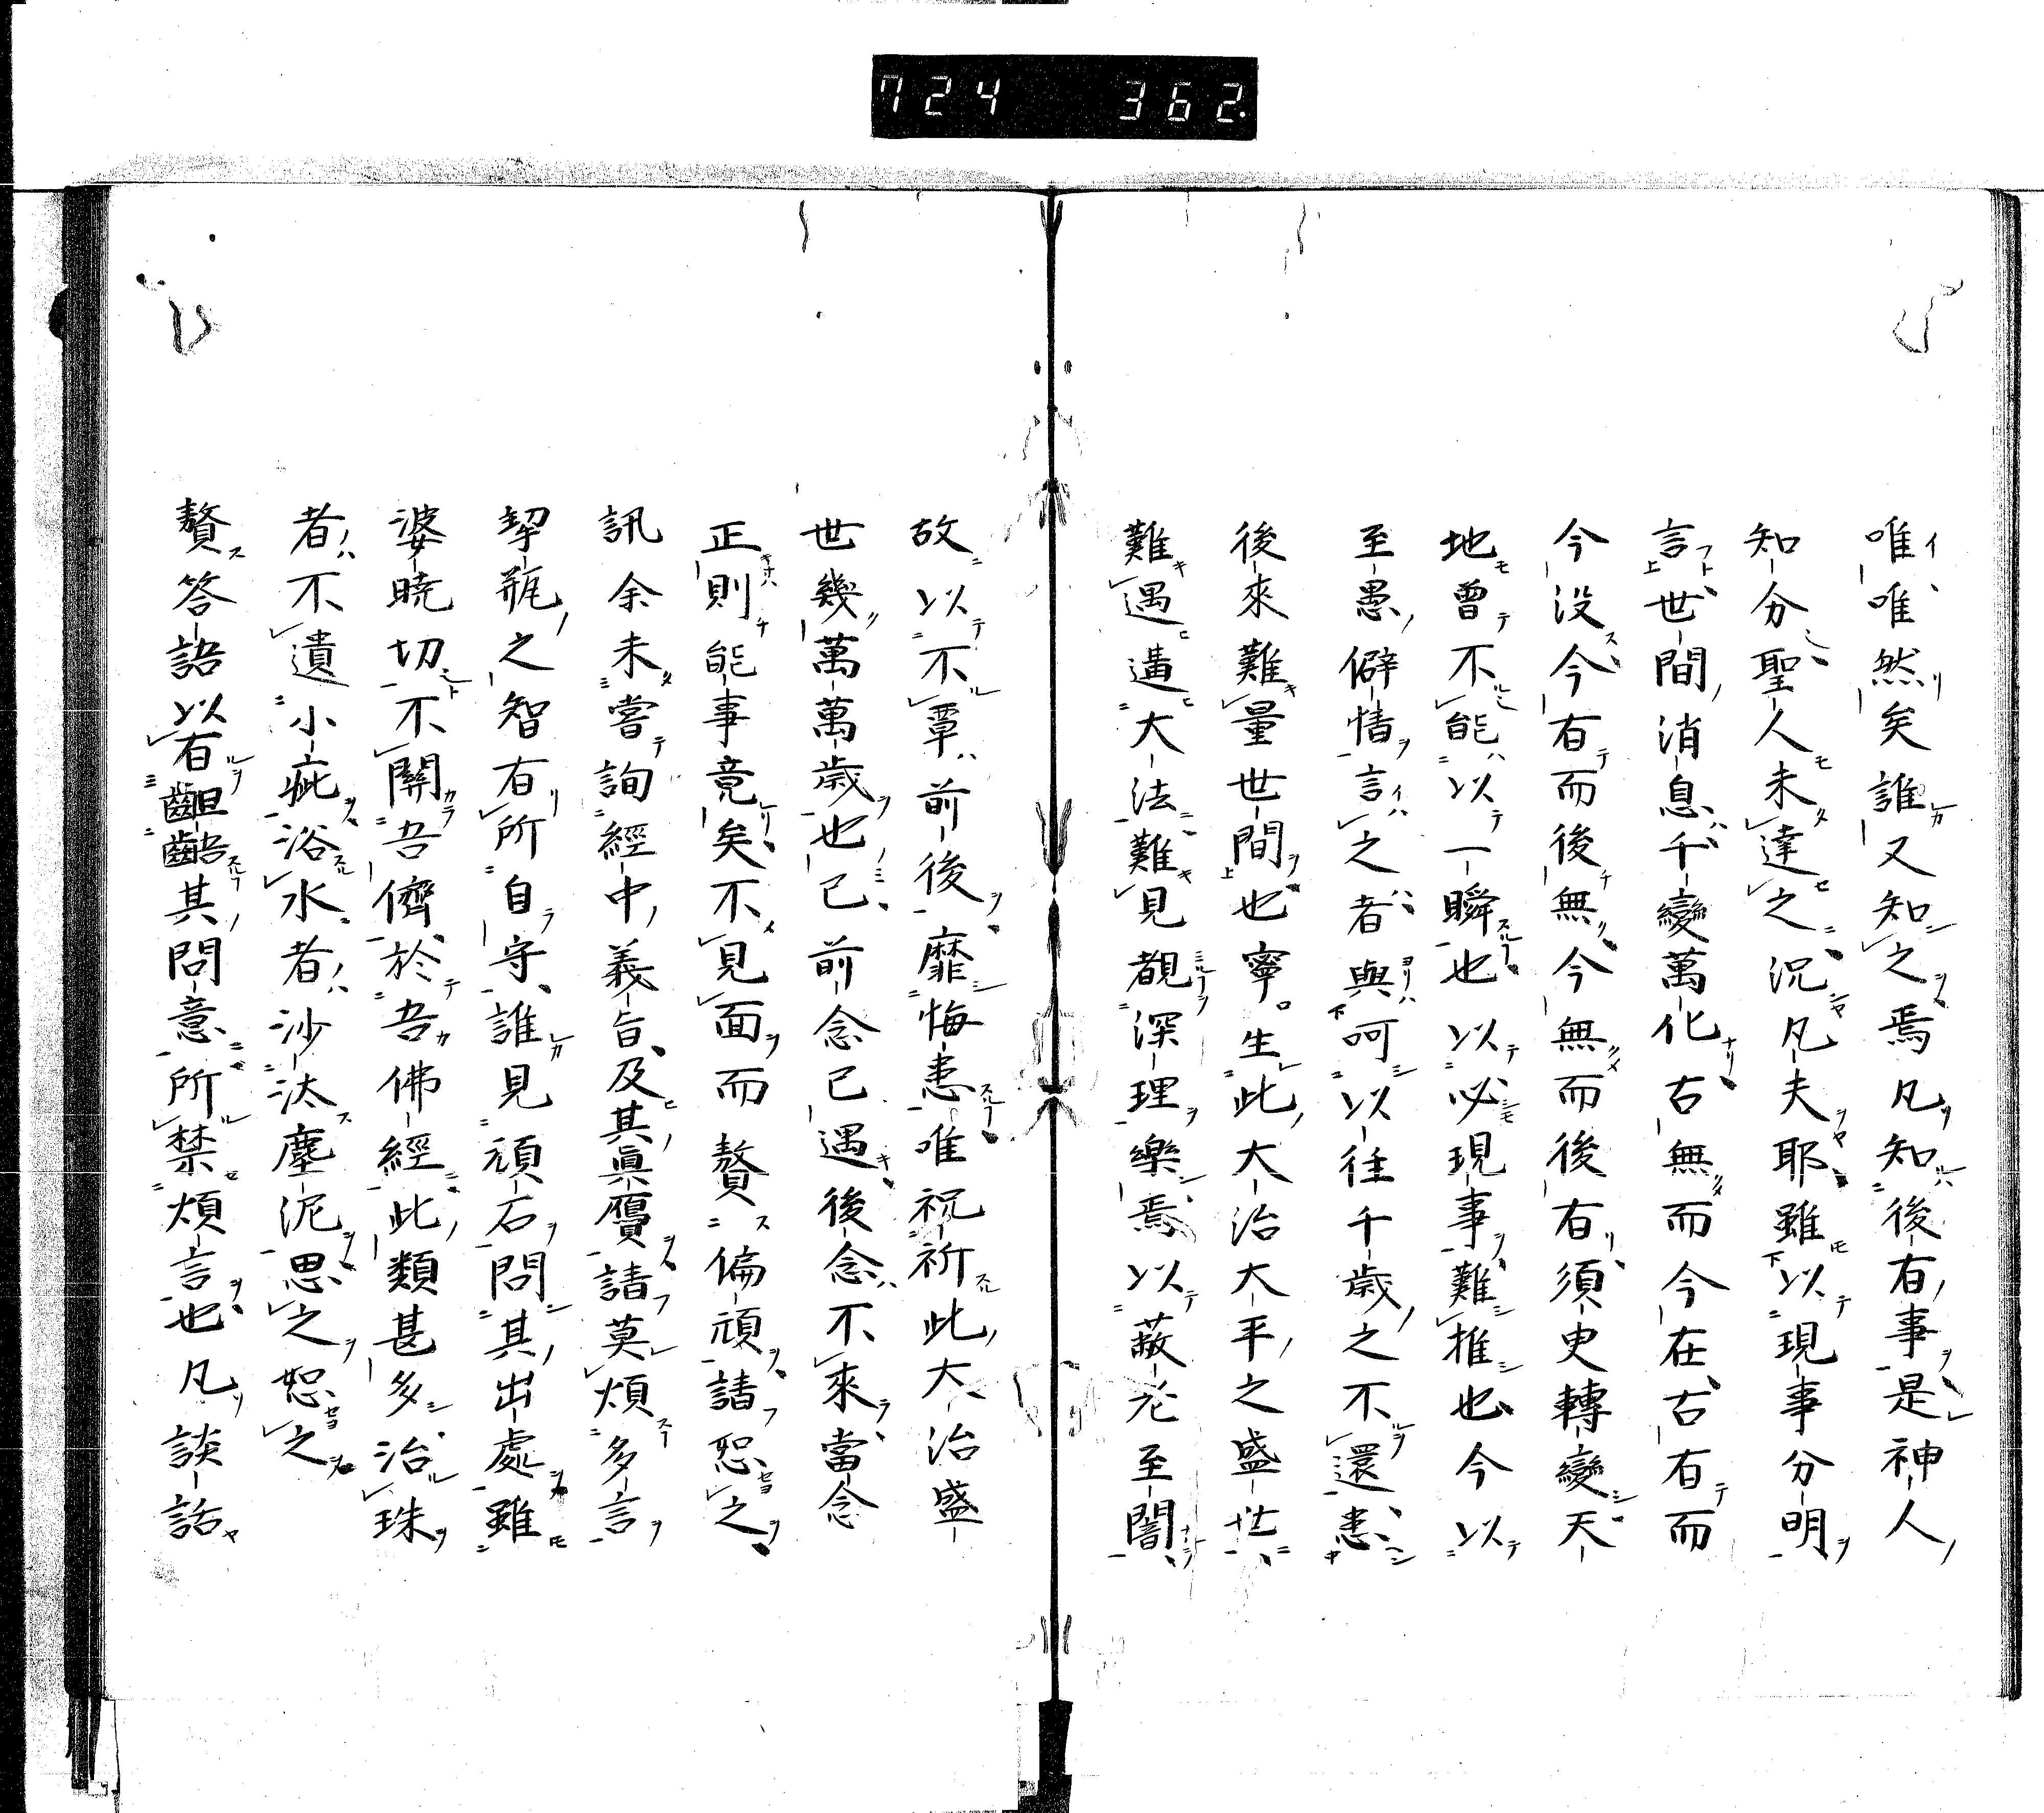 724 362
唯唯然矣誰又知之焉凡知後有事是神人
知分聖人未達之況凡夫耶雖以現事分明
言世間消息千變萬化古無而今在古有而
今没今有而後無今無而後有須臾轉變天
地曾不能以一瞬也以必現事難推也今以
至愚僻情言之者與可以往千歳之不還患
後來難量世間也寧生此大治大平之盛世
難遇遘大法難見覩深理樂焉以蔽尤至闇
故以不覃前後靡悔恚唯祝祈此大治盛
世幾萬萬歳也已前念已遇後念不來當念
正則能事竟矣不見面而贅偏頑請恕之
訊余未嘗詢經中義旨及其眞贋請莫煩多言
挈瓶之智有所自守誰見頑石問其出處雖
婆暁切不關吾儕於吾佛經此類甚多治珠
者不遺小疵浴水者沙汰塵泥思之恕之
贅答語以有齟齬其問意所禁煩言也凡談話